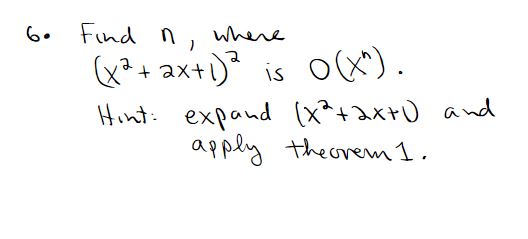 6. Find n, where
(x² + 2x+1)² is O(xⁿ).
Hint: expand (x²+2x+1) and
apply theorem 1.